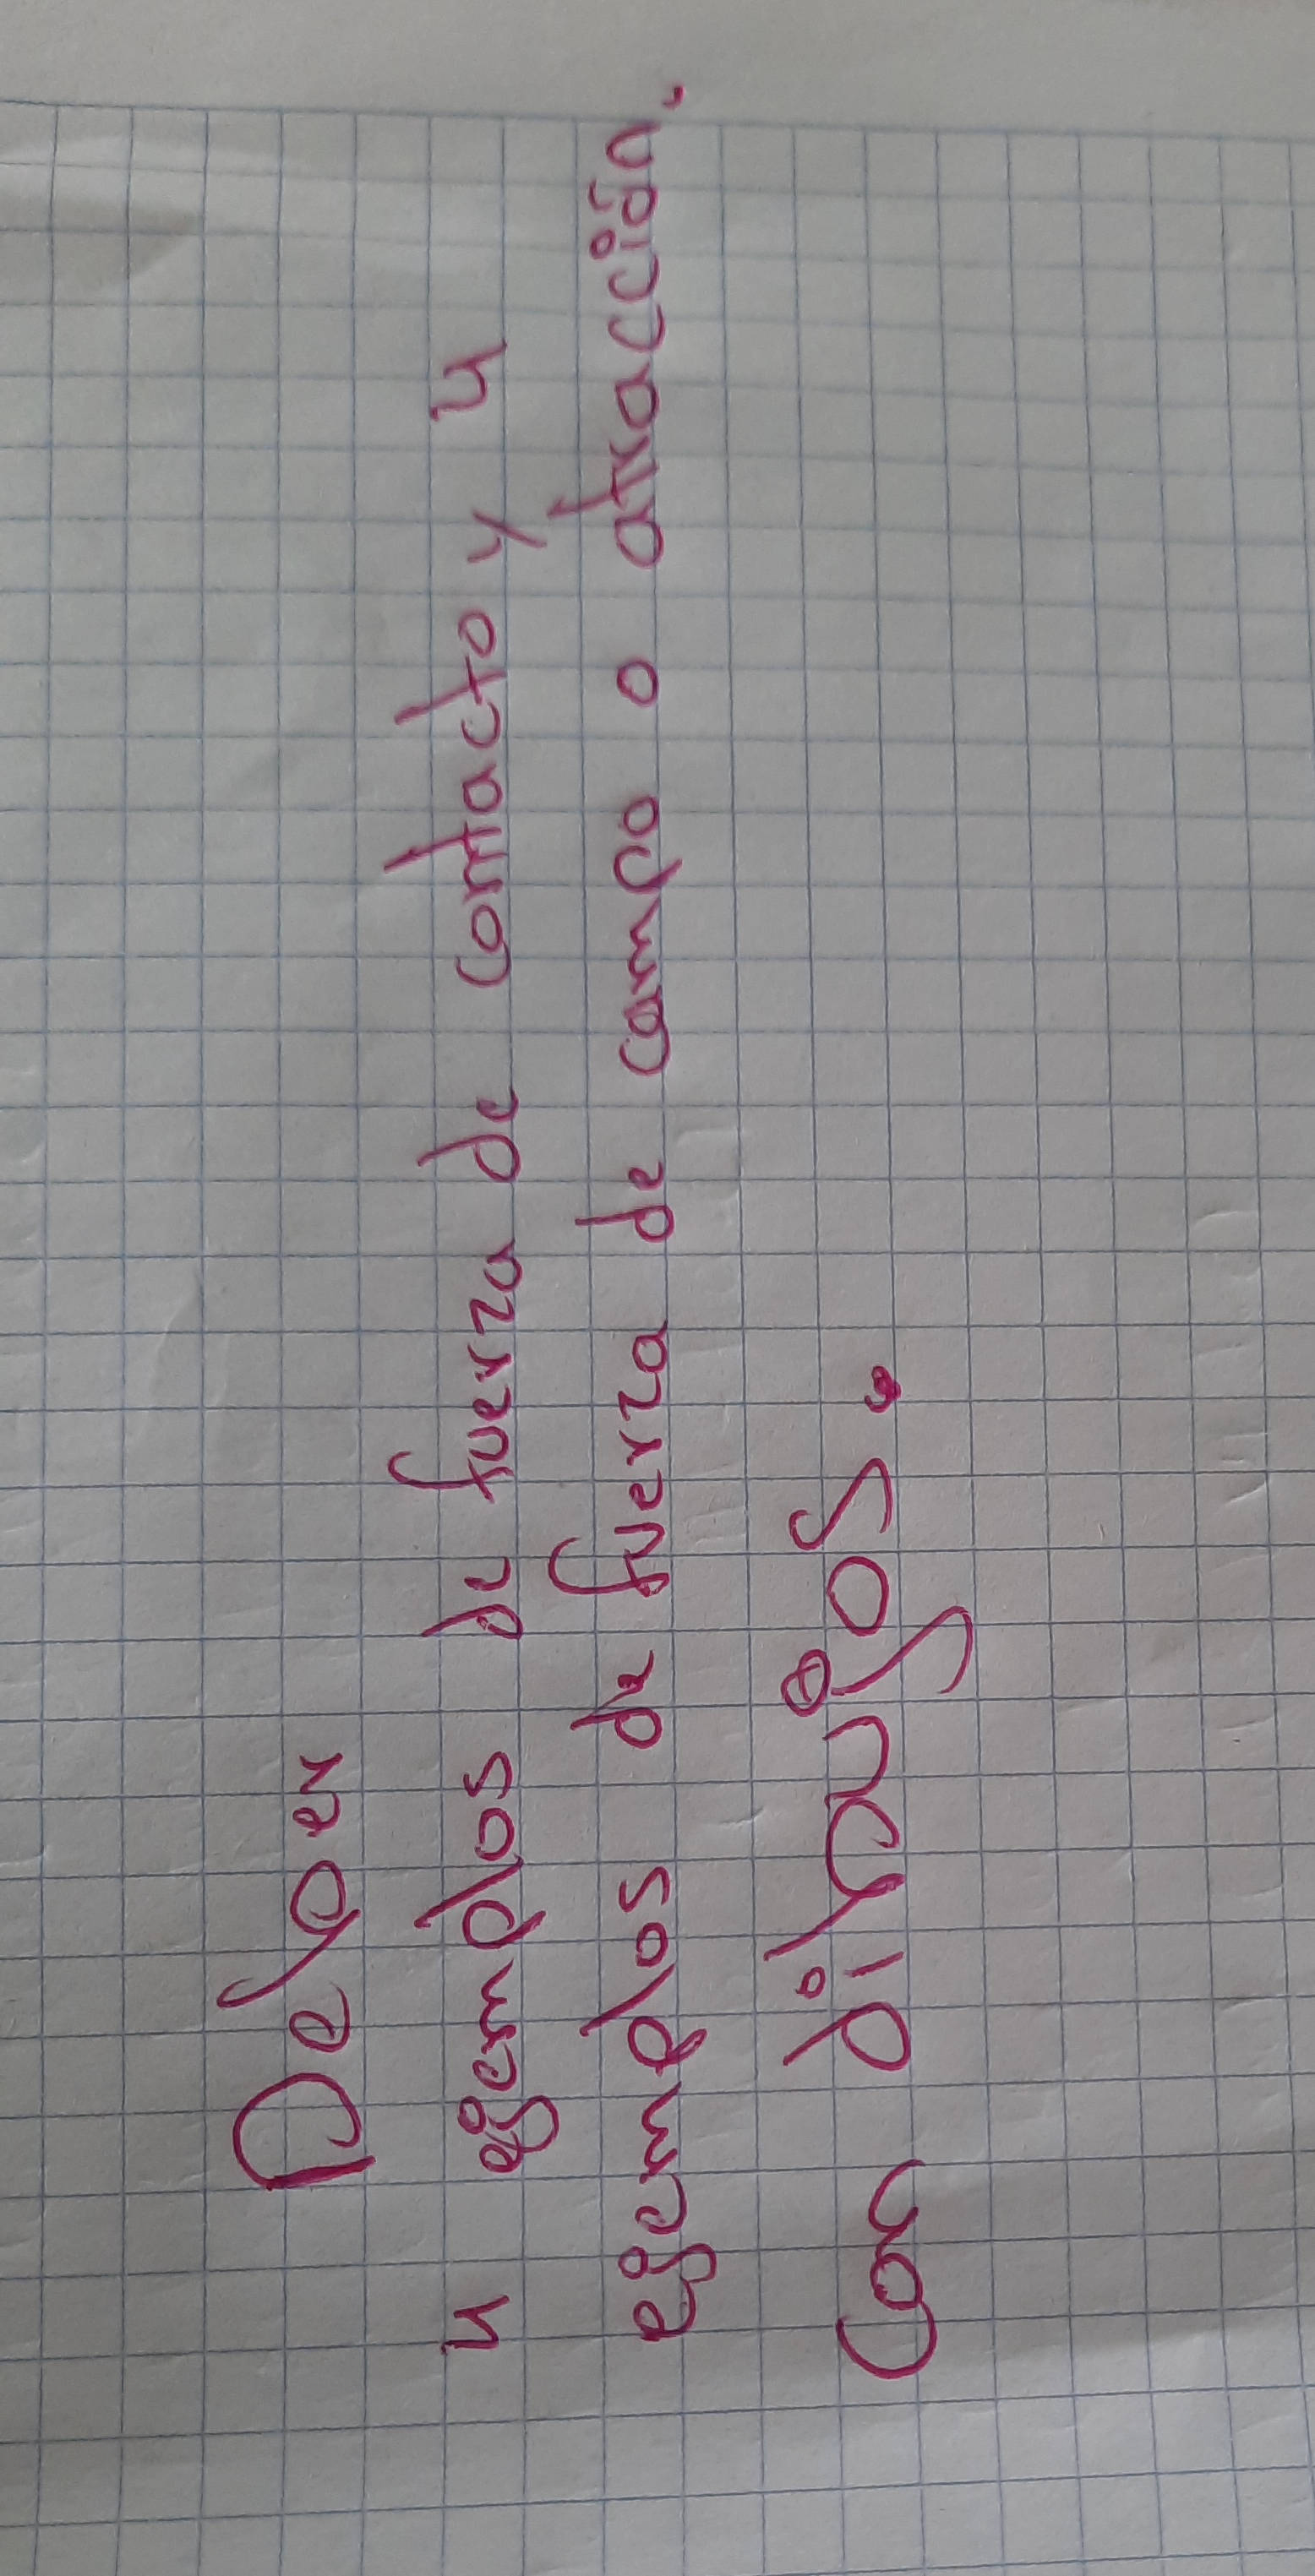 Deber
4 ejemplos de fuerza de contacto y 4
ejemplos de fuerza de campo o atracción.
Con dibujos.